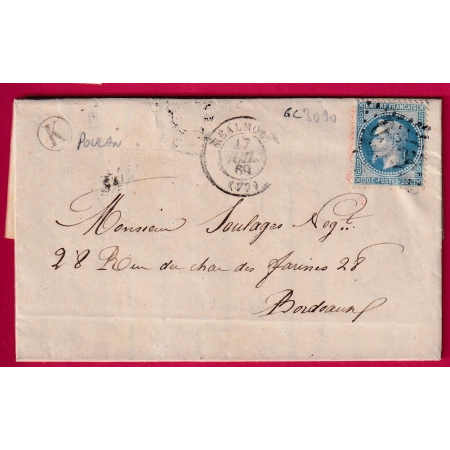 K
POULAN
GC 3090
REALMONT
17
JUIL
69
(77)
EMPIRE FRANÇAIS
20 C POSTES 20 C
Monsieur Soulages Negt.
28 Rue du chai des farines 28
Bordeaux